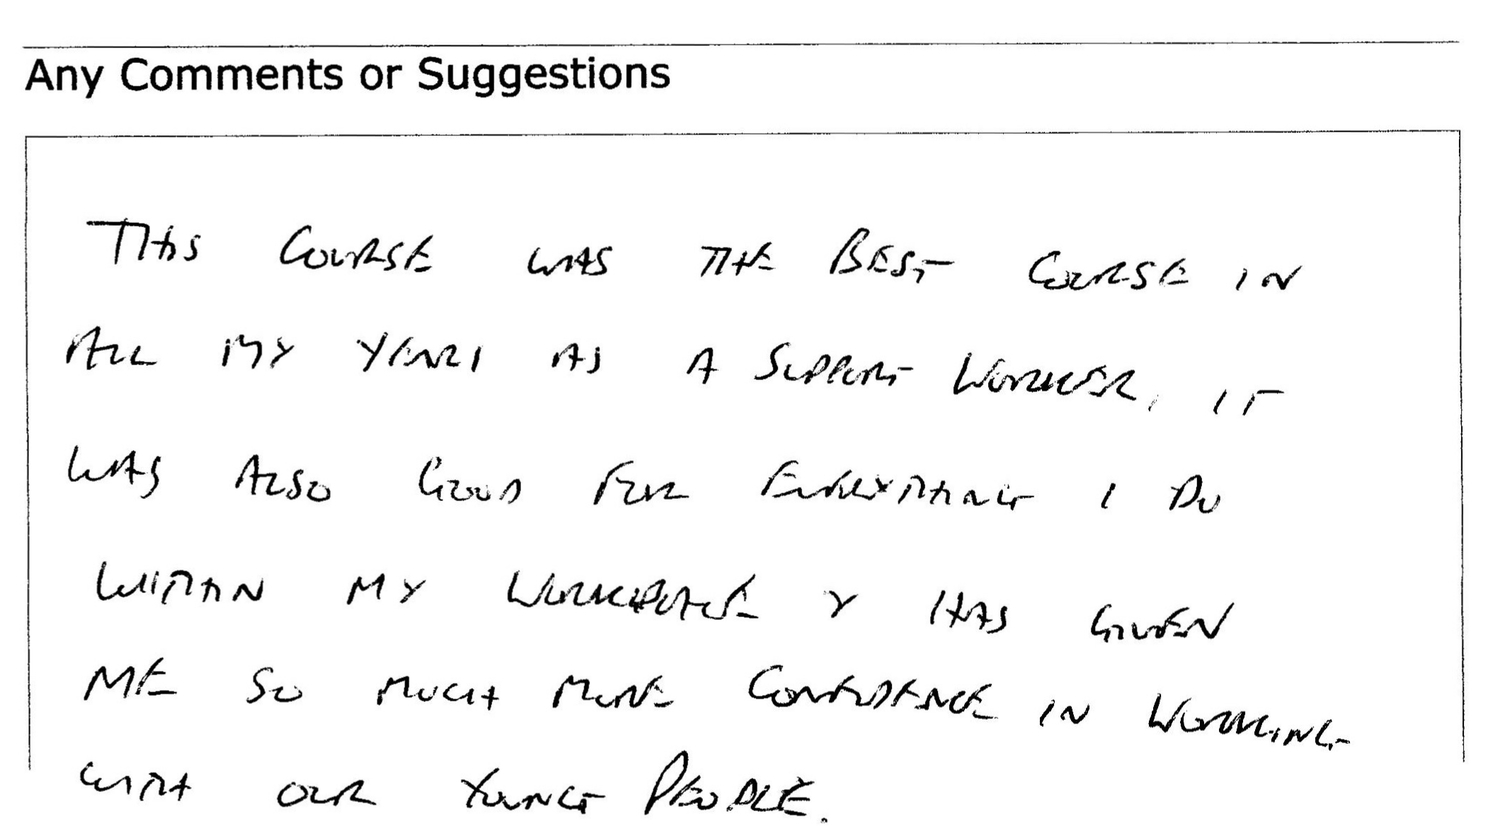 Any Comments or Suggestions
THIS COURSE WAS THE BEST COURSE IN
ALL MY YEARS AS A SUPPORT WORKER, IT
WAS ALSO GOOD FOR EVERYTHING I DO
WITHIN MY WORKPLACE & HAS GIVEN
ME SO MUCH MORE CONFIDENCE IN WORKING
WITH OUR YOUNG PEOPLE.